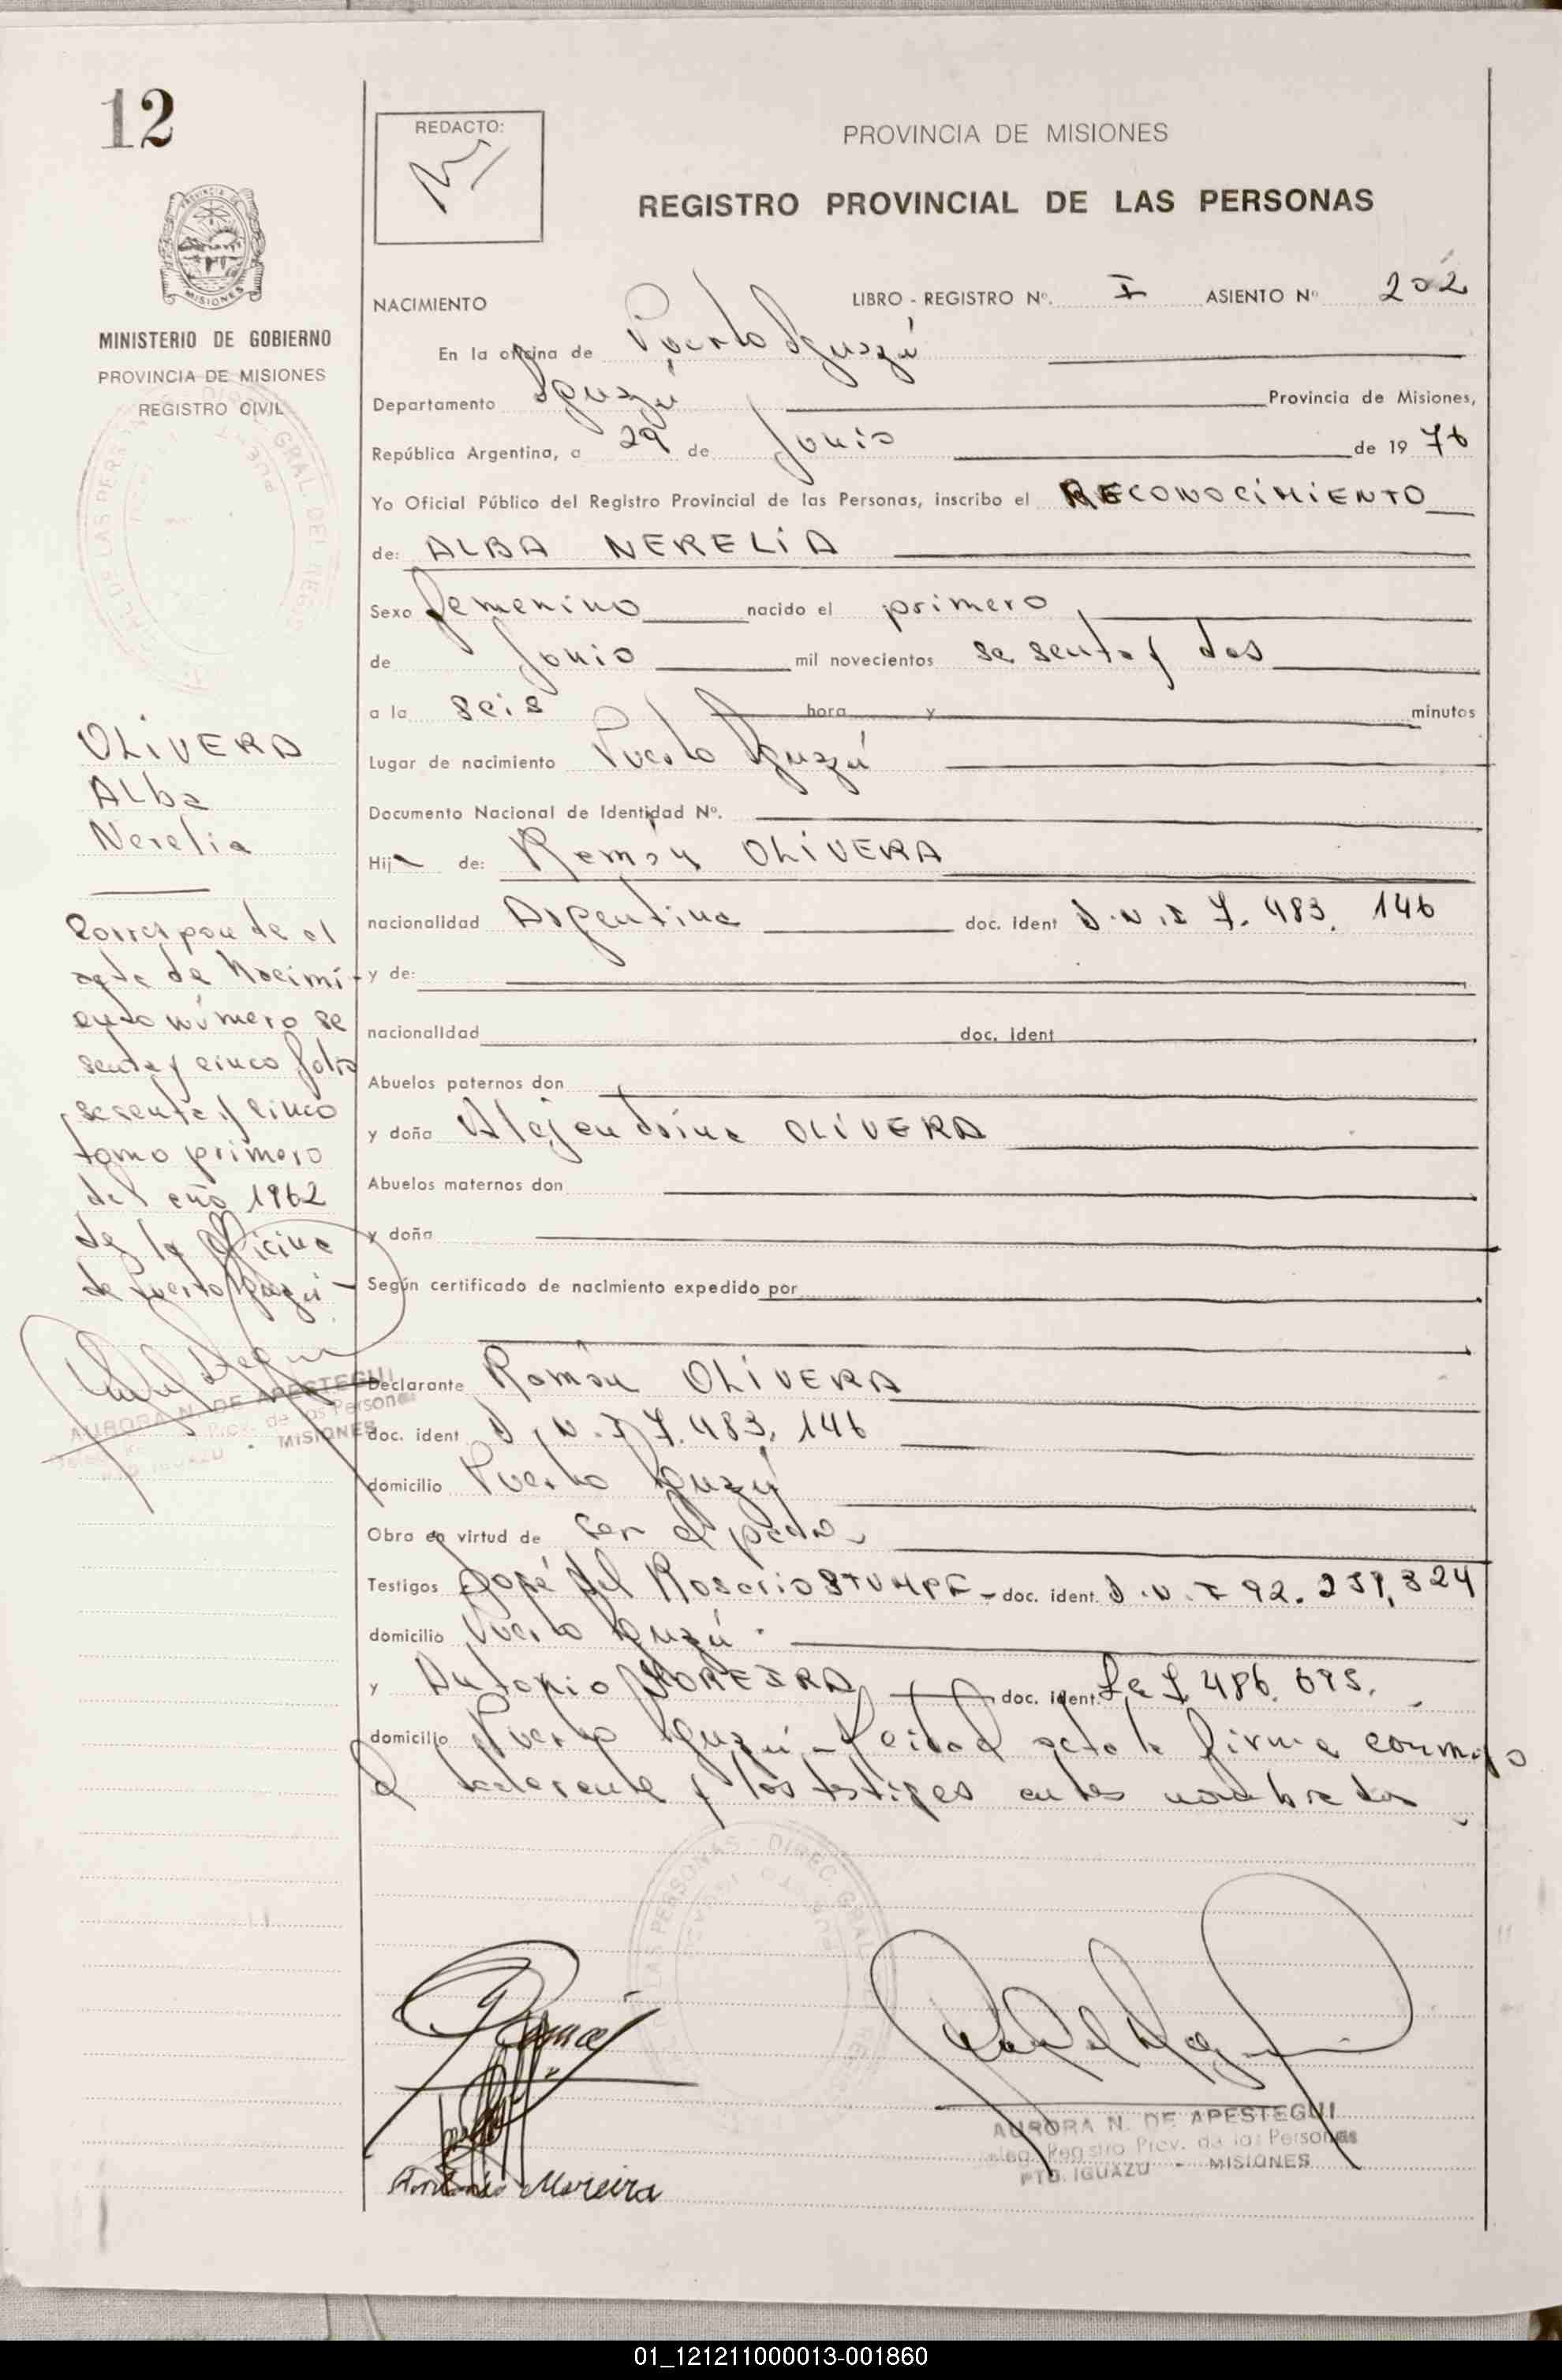 12
REDACTO:
PROVINCIA DE MISIONES
REGISTRO PROVINCIAL DE LAS PERSONAS
MISIONES
MINISTERIO DE GOBIERNO
PROVINCIA DE MISIONES
REGISTRO CIVIL
NACIMIENTO
LIBRO - REGISTRO Nº. I ASIENTO Nº 202
En la oficina de Puerto Iguazú
Departamento Iguazú Provincia de Misiones,
República Argentina, a 29 de Junio de 1976
Yo Oficial Público del Registro Provincial de las Personas, inscribo el RECONOCIMIENTO
de: ALBA NERELIA
Sexo femenino nacido el primero
de Junio mil novecientos sesenta y dos
a la seis hora y minutos
Lugar de nacimiento Puerto Iguazú
Documento Nacional de Identidad Nº.
Hija de: Ramón OLIVERA
nacionalidad Argentina doc. ident D.N.I 7.483.146
y de:
nacionalidad doc. ident
Abuelos paternos don
y doña Alejandrina OLIVERA
Abuelos maternos don
y doña
Según certificado de nacimiento expedido por
Declarante Ramón OLIVERA
doc. ident D.N.I 7.483.146
domicilio Puerto Iguazú
Obra en virtud de ser el padre
Testigos José del Rosario STUMPF - doc. ident. D.N.I 92.259.324
domicilio Puerto Iguazú.
y Antonio MOREIRA doc. ident. 486.695.
domicilio Puerto Iguazú - Leida el acta la firma conmigo
el declarante y los testigos antes nombrados
OLIVERA
Alba
Nerelia
Corresponde al
acta de Nacimi-
ento número se
senta y cinco folio
sesenta y cinco
tomo primero
del año 1962
de la Oficina
de Puerto Iguazú -
AURORA N. DE APESTEGUI
Prov. de las Personas
PTO. IGUAZU - MISIONES
Antonio Moreira
AURORA N. DE APESTEGUI
Deleg. Registro Prov. de las Personas
PTO. IGUAZU - MISIONES
01_121211000013-001860